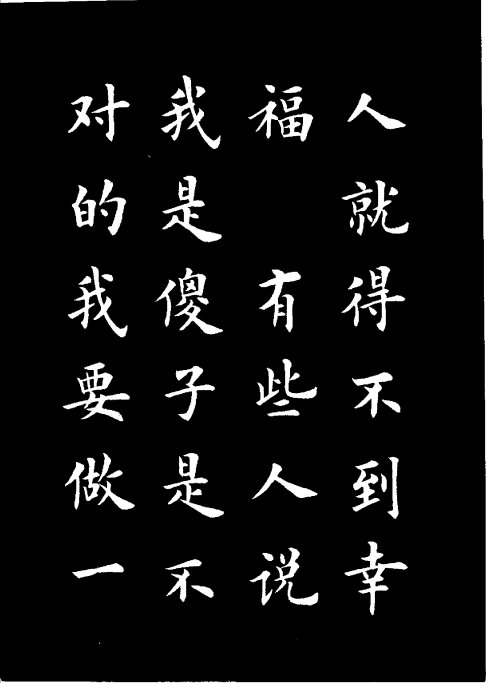 人就得不到幸
福 有些人说
我是傻子是不
对的我要做一